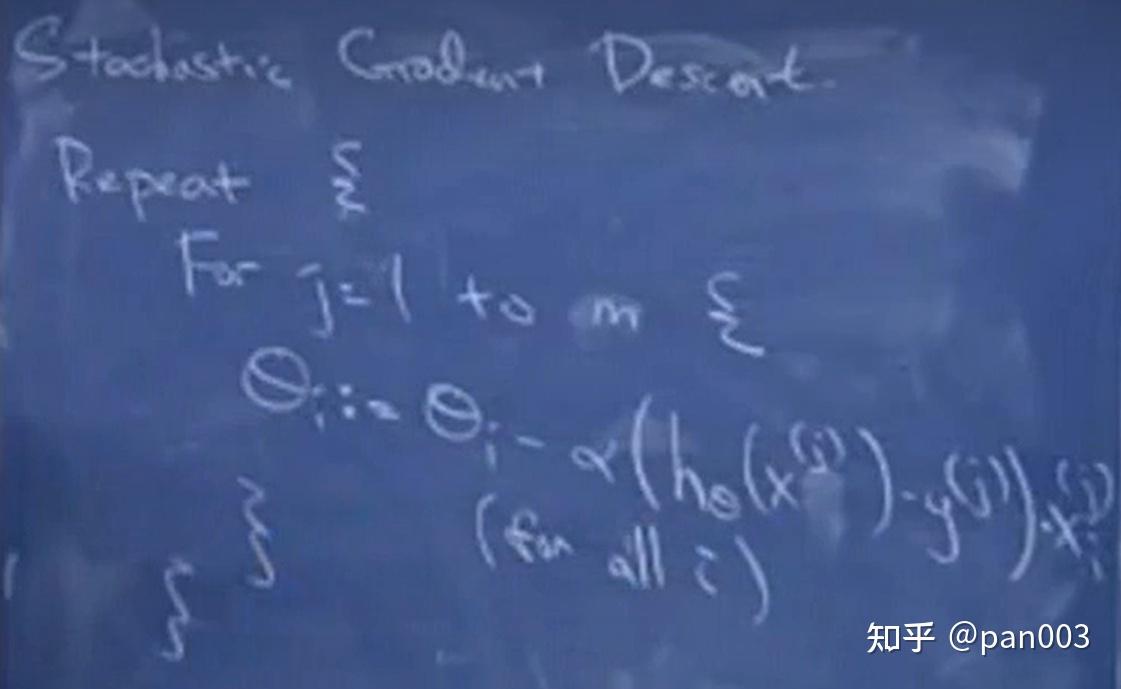 Stochastic Gradient Descent.
Repeat {
For j=1 to m {
θᵢ := θᵢ - α(h_θ(x⁽ʲ⁾) - y⁽ʲ⁾)·xᵢ⁽ʲ⁾
(for all i)
}
}
知乎 @pan003